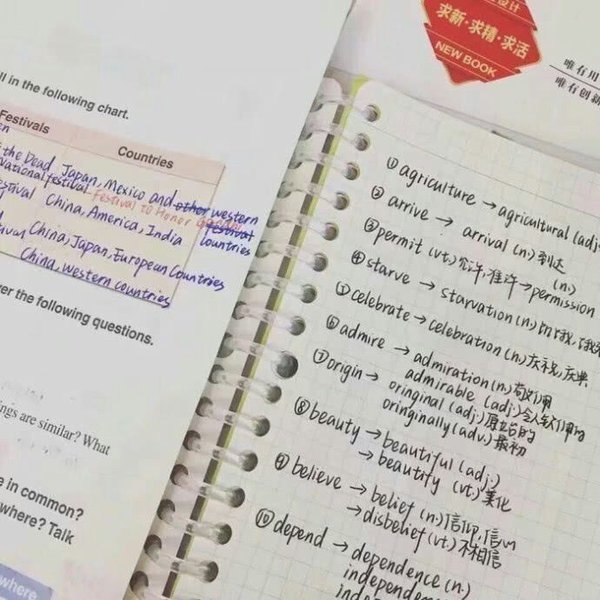 ll in the following chart.
Festivals
Countries
the Dead Japan, Mexico and other western
national festival Festival to Honor
festival
China, America, India
Countries
China, Japan, European Countries
China, western countries
er the following questions.
ngs are similar? What
e in common?
where? Talk
where
求新·求精·求活
NEW BOOK
唯有用
唯有创新
①agriculture → agricultural (adj.
②arrive → arrival (n.) 到达
③permit (vt.) 允许,准许 → permission
(n.)
④starve → starvation (n.) 饥饿,
⑤celebrate → celebration (n.) 庆祝,庆典
⑥admire → admiration (n.) 敬佩
admirable (adj.) 令人钦佩的
⑦origin → oringinal (adj.) 原始的
oringinally (adv.) 最初
⑧beauty → beautiful (adj.)
→ beautify (vt.) 美化
⑨believe → belief (n.) 信仰,信心
→ disbelief (vt.) 不相信
⑩depend → dependence (n.)
independence